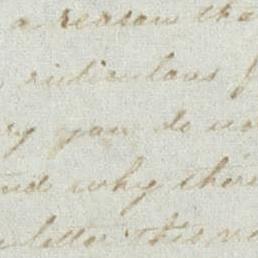 a reason tha
ridiculous f
ry you do no
nd why there
letter